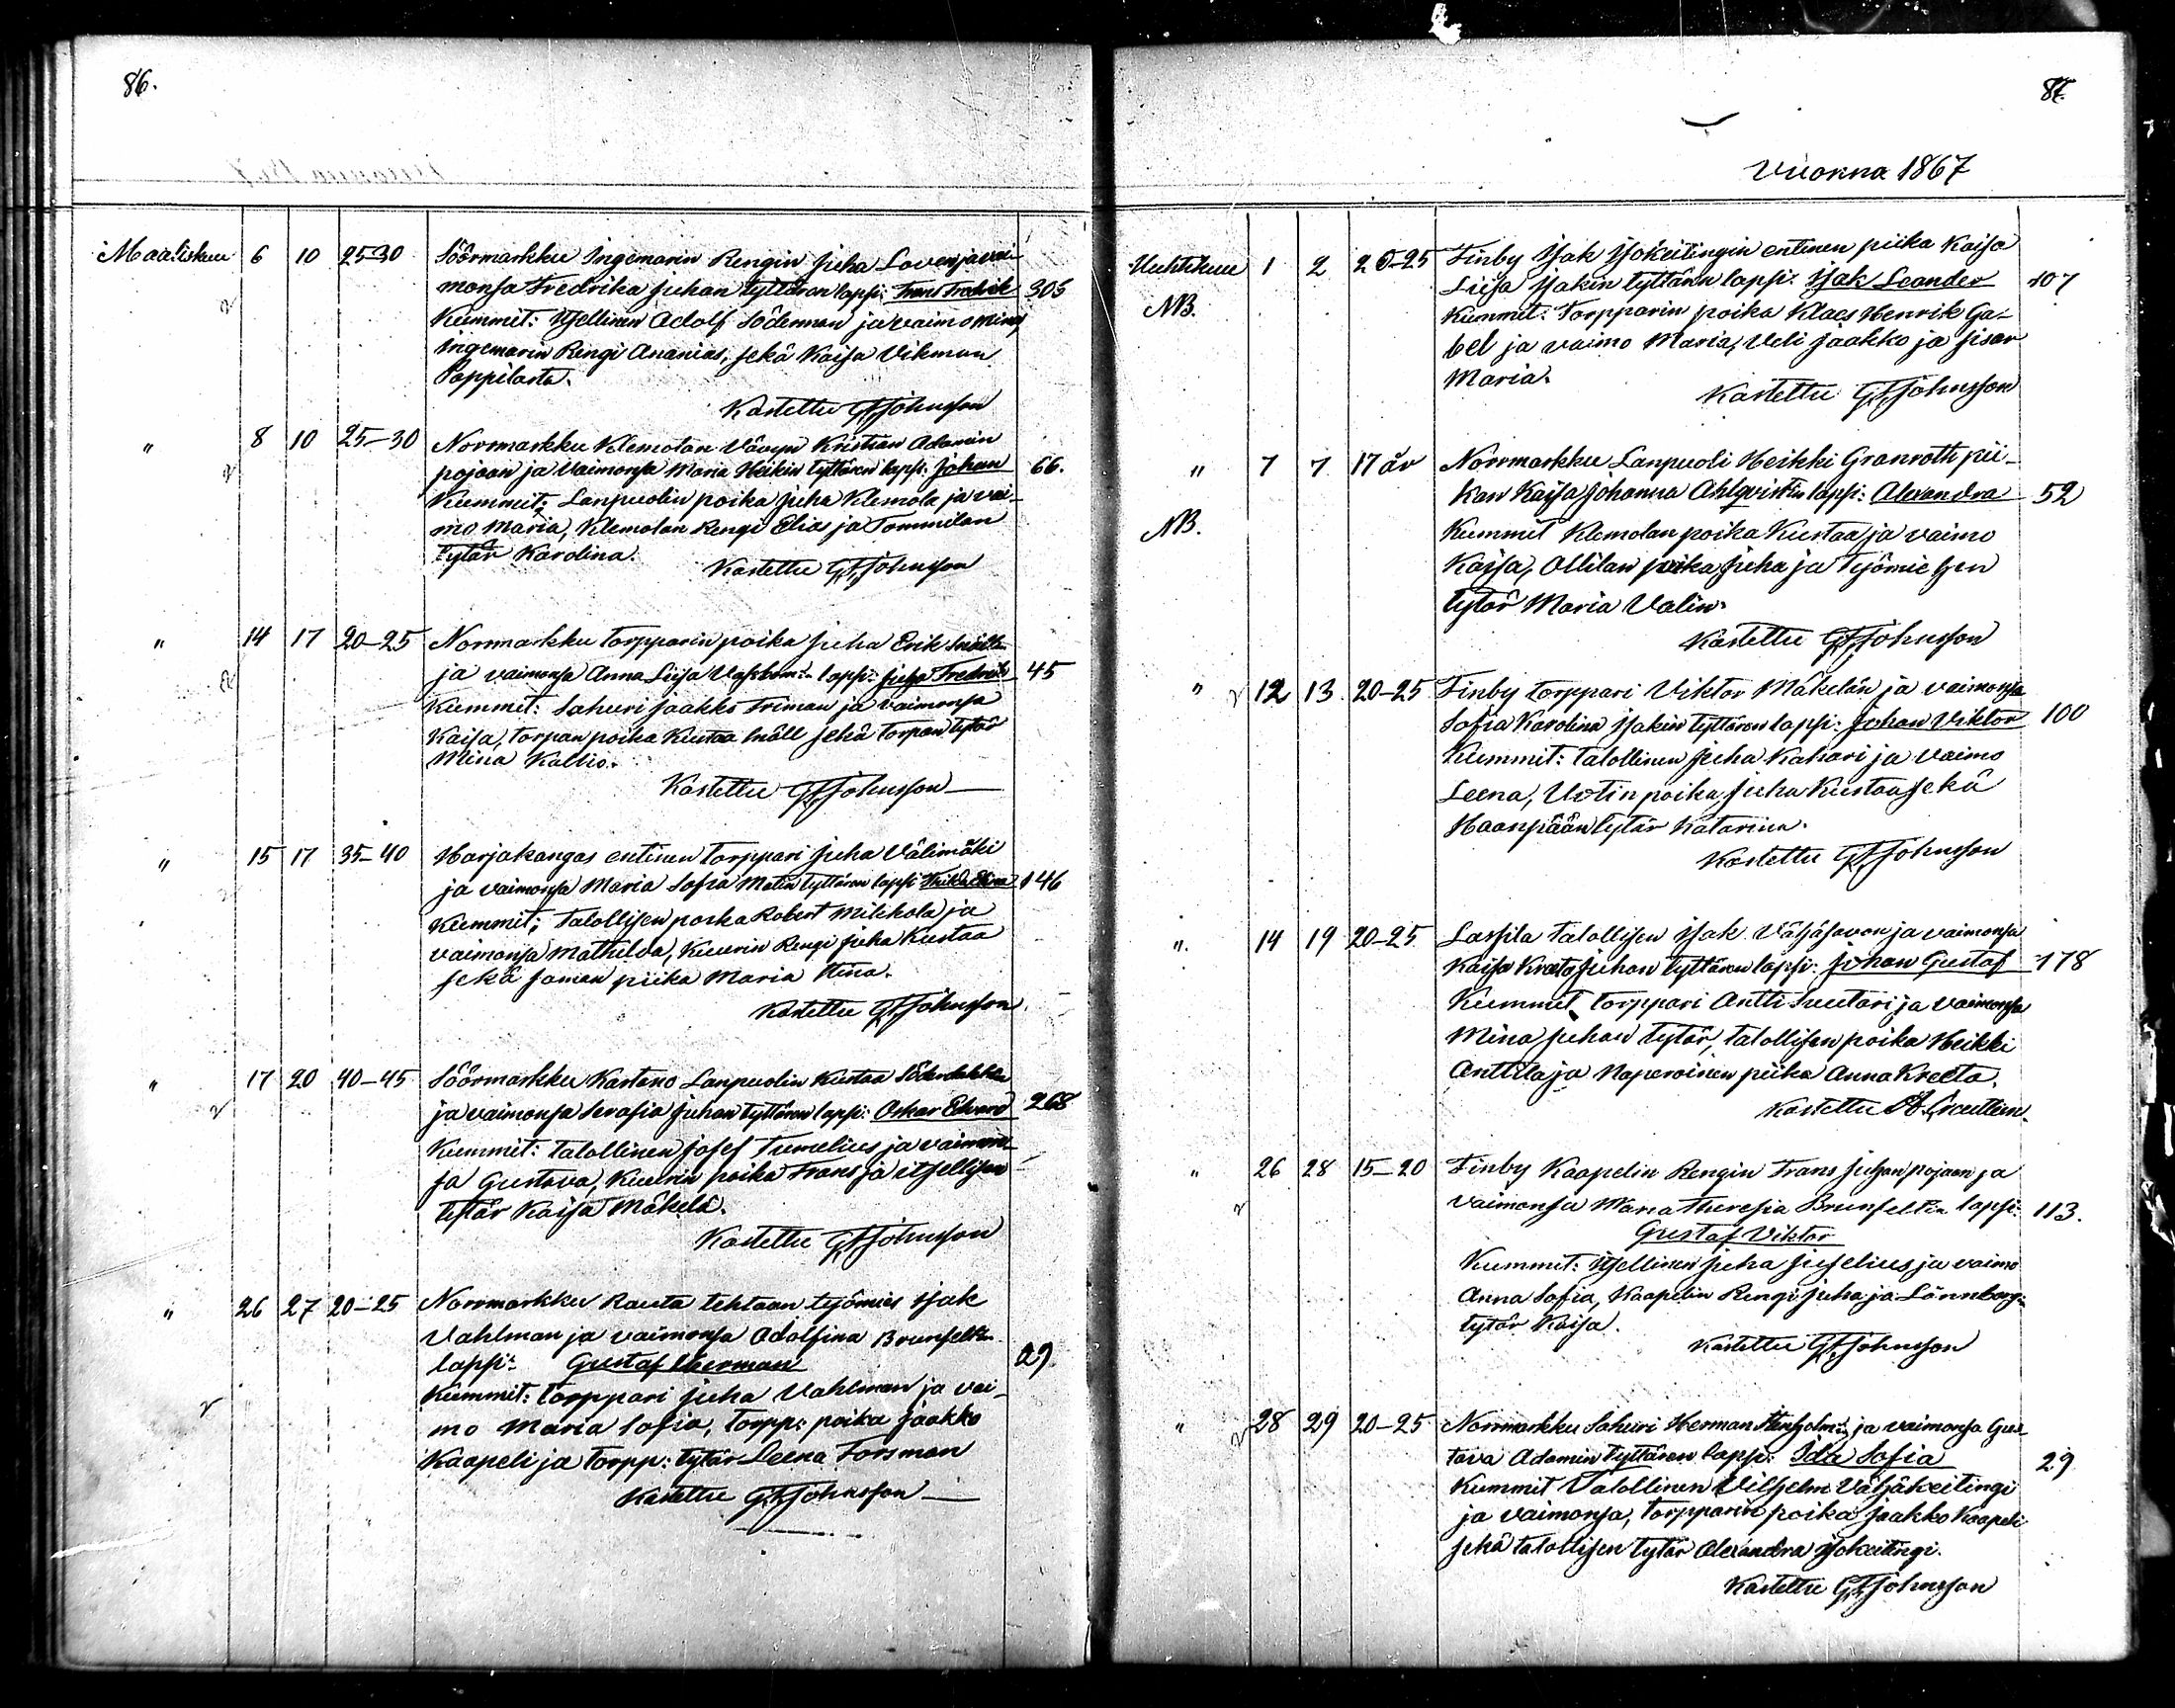 86.
Maaliskuu 6 10 25-30 Söörmarkku Ingemarin Rengin Juha Loven ja vai-
monsa Fredrika Juhan tyttären lapsi: Frans Fredrik 305
Kummit: Itsellinen Adolf Söderman ja vaimo Mina,
Ingemarin Rengi Ananias, sekä Kaisa Vikman
Pappilasta.
Kastettu G.F. Johnsson
" 8 10 25-30 Norrmarkku Klemolan Vävyn Kristian Adamin
pojan ja vaimonsa Maria Heikin tyttären lapsi: Johan 66.
Kummit: Lanpuolin poika Juha Klemola ja vai-
mo Maria, Klemolan Rengi Elias ja Tommilan
tytär Karolina.
Kastettu G.F. Johnsson
" 14 17 20-25 Norrmarkku torpparin poika Juha Erik
ja vaimonsa Anna Liisa lapsi: Juha Fredrik 45
Kummit: Sahuri Jaakko Friman ja vaimonsa
Kaisa, torpan poika Kustaa Snäll sekä torpan tytär
Mina Kallio.
Kastettu G.F. Johnsson
" 15 17 35-40 Harjakangas entinen torppari Juha Välimäki
ja vaimonsa Maria Sofia Matin tyttären lapsi 146
Kummit; talollisen poika Robert Mikkola ja
vaimonsa Mathilda, Kuurin Rengi Juha Kustaa
sekä saman piika Maria Stina.
Kastettu G.F. Johnsson
" 17 20 40-45 Söörmarkku Kartano Lanpuolin Kustaa
ja vaimonsa Serafia Juhan tyttären lapsi: Oskar Edvard 268
Kummit: talollinen Josef Tumelius ja vaimon-
sa Gustava, Kuurin poika Frans ja itsellisen
tytär Kaisa Mäkelä.
Kastettu G.F. Johnsson
" 26 27 20-25 Norrmarkku Rauta tehtaan työmies Isak
Vahlman ja vaimonsa Adolfina Brunfeltin
lapsi: Gustaf Herman 29.
Kummit: torppari Juha Vahlman ja vai-
mo Maria Sofia, torpp: poika Jaakko
Kaapeli ja torpp: tytär Leena Forsman
Kastettu G.F. Johnsson
87.
Vuonna 1867
Huhtikuu 1 2 20-25 Finby Isak Isokeitingin entinen piika Kaisa
Liisa Isakin tyttären lapsi: Isak Leander 107
NB. Kummit: Torpparin poika Klaes Henrik Ga-
bel ja vaimo Maria, Veli Jaakko ja sisar
Maria.
Kastettu G.F. Johnsson
" 7 7 17 år Norrmarkku Lanpuoli Heikki Granroth pii-
kan Kaisa Johanna Ahlqvistin lapsi: Alexandra 52
NB. Kummit Klemolan poika Kustaa ja vaimo
Kaisa, Ollilan poika Juha ja Työmiehen
tytär Maria Valin.
Kastettu G.F. Johnsson
" 12 13 20-25 Finby torppari Viktor Mäkelän ja vaimonsa
Sofia Karolina Isakin tyttären lapsi: Johan Viktor 100
Kummit: talollinen Juha Kahari ja vaimo
Leena, Uotin poika Juha Kustaa sekä
Haanpään tytär Katarina.
Kastettu G.F. Johnsson
" 14 19 20-25 Lassila talollisen Isak Vähäsavon ja vaimonsa
Kaisa Kreeta Juhan tyttären lapsi: Johan Gustaf 178
Kummit torppari Antti Suutari ja vaimonsa
Mina Juhan tytär, talollisen poika Heikki
Anttila ja Naperoinen piika Anna Kreeta.
Kastettu
" 26 28 15-20 Finby Kaapelin Rengin Frans Juhan pojan ja
vaimonsa Maria Theresia Brunfeltin lapsi: 113.
Gustaf Viktor
Kummit: Itsellinen Juha Juselius ja vaimo
Anna Sofia, Kaapelin Rengi Juha ja Lönnbergin
tytär Kaisa.
Kastettu G.F. Johnsson
" 28 29 20-25 Norrmarkku Sahuri Herman Stenholmin ja vaimonsa Gus-
tava Adamin tyttären lapsi: Ida Sofia 29
Kummit Talollinen Vilhelm Vähäkeitingi
ja vaimonsa, torpparin poika Jaakko Kaapeli
sekä talollisen tytär Alexandra Isokeitingi.
Kastettu G.F. Johnsson